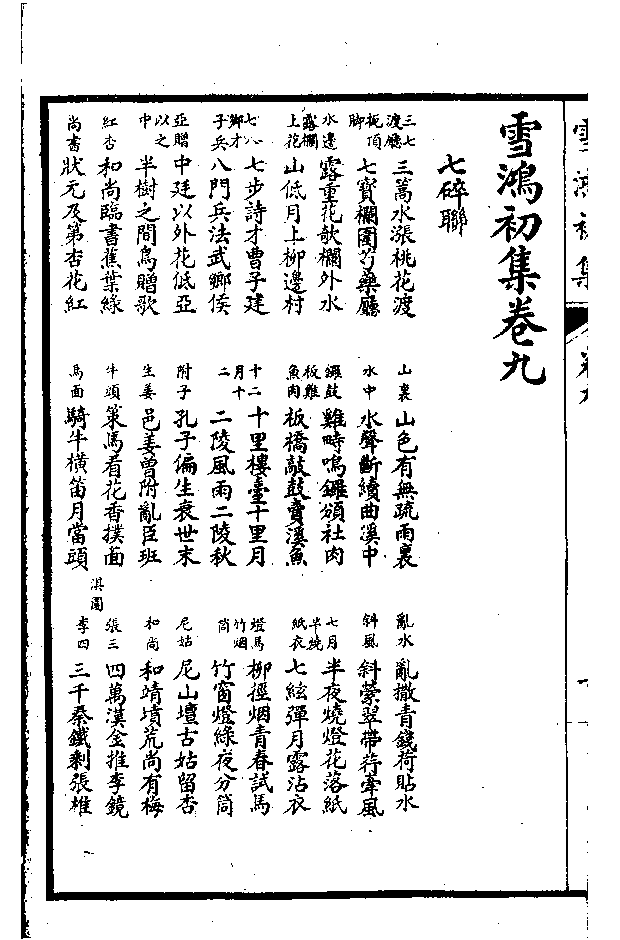 雪鴻初集卷九
七碎聯
三七渡廳板頂脚
三篙水漲桃花渡
七寶欄圍芍藥廳
水邊露欄上花
露重花欹欄外水
山低月上柳邊村
七八鄉才子兵
七步詩才曹子建
八門兵法武鄉侯
亞贈以之中
中廷以外花低亞
半樹之間鳥贈歌
紅杏
和尚臨書蕉葉綠
尚書
狀元及第杏花紅
山裏
山色有無疏雨裏
水中
水聲斷續曲溪中
鑼鼓板雞魚肉
雞時鳴鑼頒社肉
板橋敲鼓賣溪魚
十二月十二
十里樓臺十里月
二陵風雨二陵秋
附子
孔子偏生衰世末
生姜
邑姜曾附亂臣班
牛頭
策馬看花香撲面
馬面
騎牛橫笛月當頭
亂水
亂撒青錢荷貼水
斜風
斜縈翠帶荇牽風
七月半燒紙衣
半夜燒燈花落紙
七絃彈月露沾衣
燈馬竹烟筒
柳徑烟青春試馬
竹窗燈綠夜分筒
尼姑
尼山壇古姑留杏
和尚
和靖墳荒尚有梅
張三
四萬漢金推李鏡
李四
三千秦鐵剩張椎
淇園